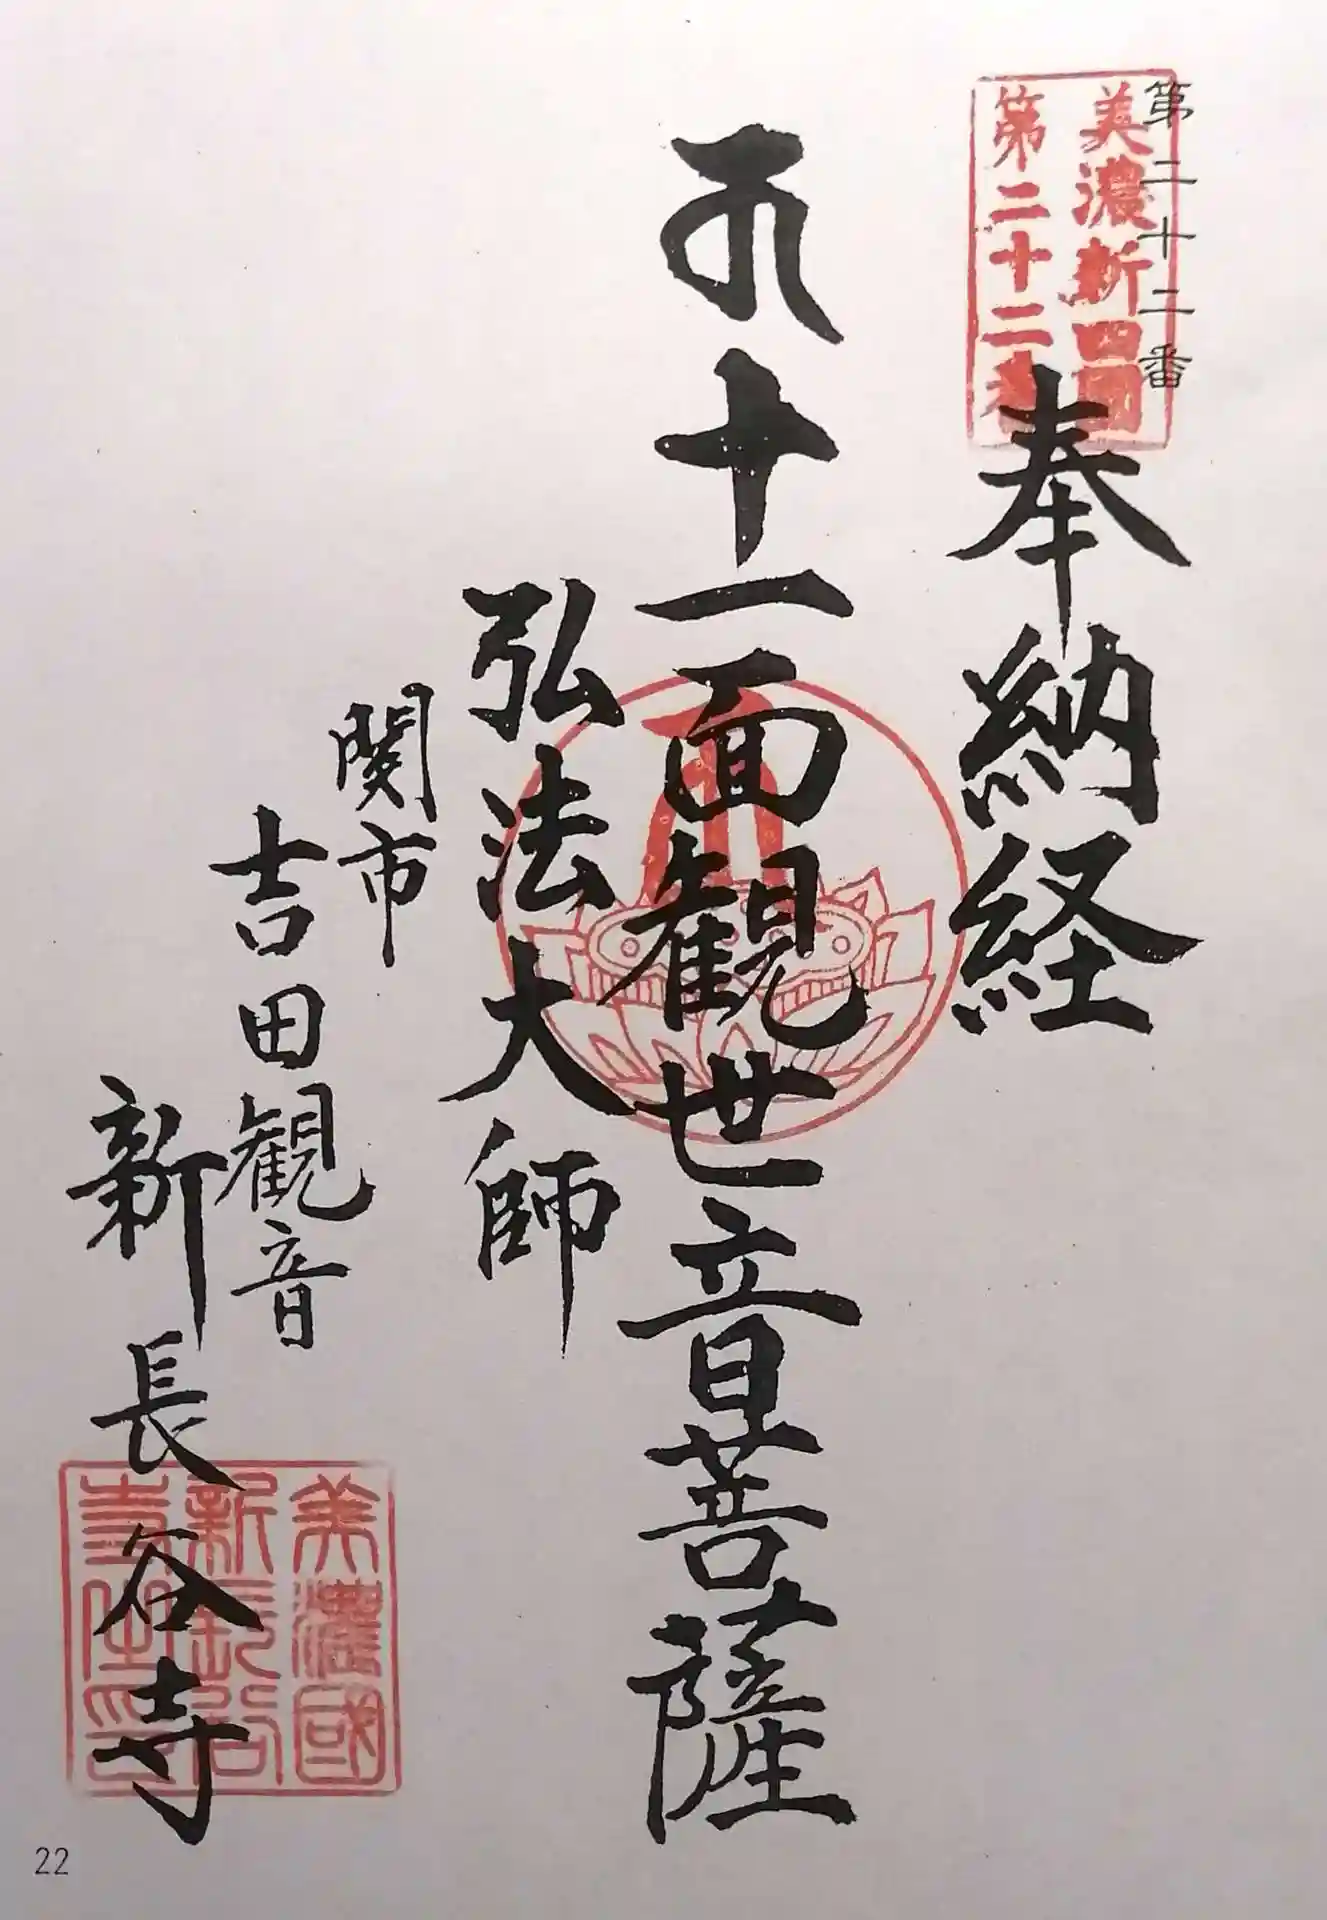 第二十二番
美濃新四國
第二十二番
奉納経
十一面観世音菩薩
弘法大師
関市
吉田観音
新長谷寺
美濃國
新長谷
寺之印
22